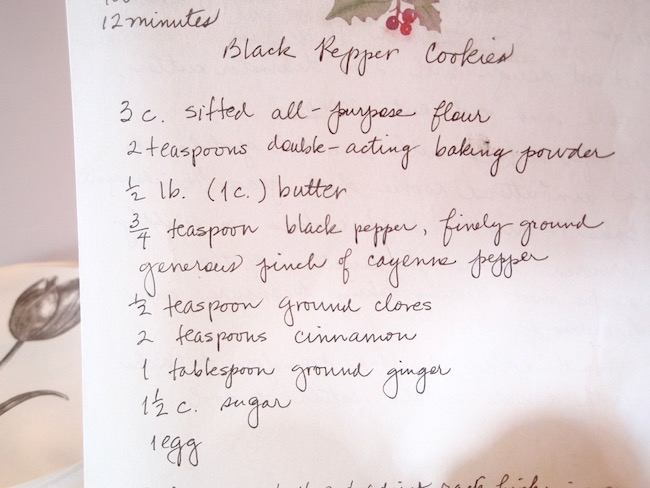 12 minutes
Black Pepper Cookies
3 c. sifted all-purpose flour
2 teaspoons double-acting baking powder
½ lb. (1c.) butter
¾ teaspoon black pepper, finely ground
generous pinch of cayenne pepper
½ teaspoon ground cloves
2 teaspoons cinnamon
1 tablespoon ground ginger
1½ c. sugar
1 egg